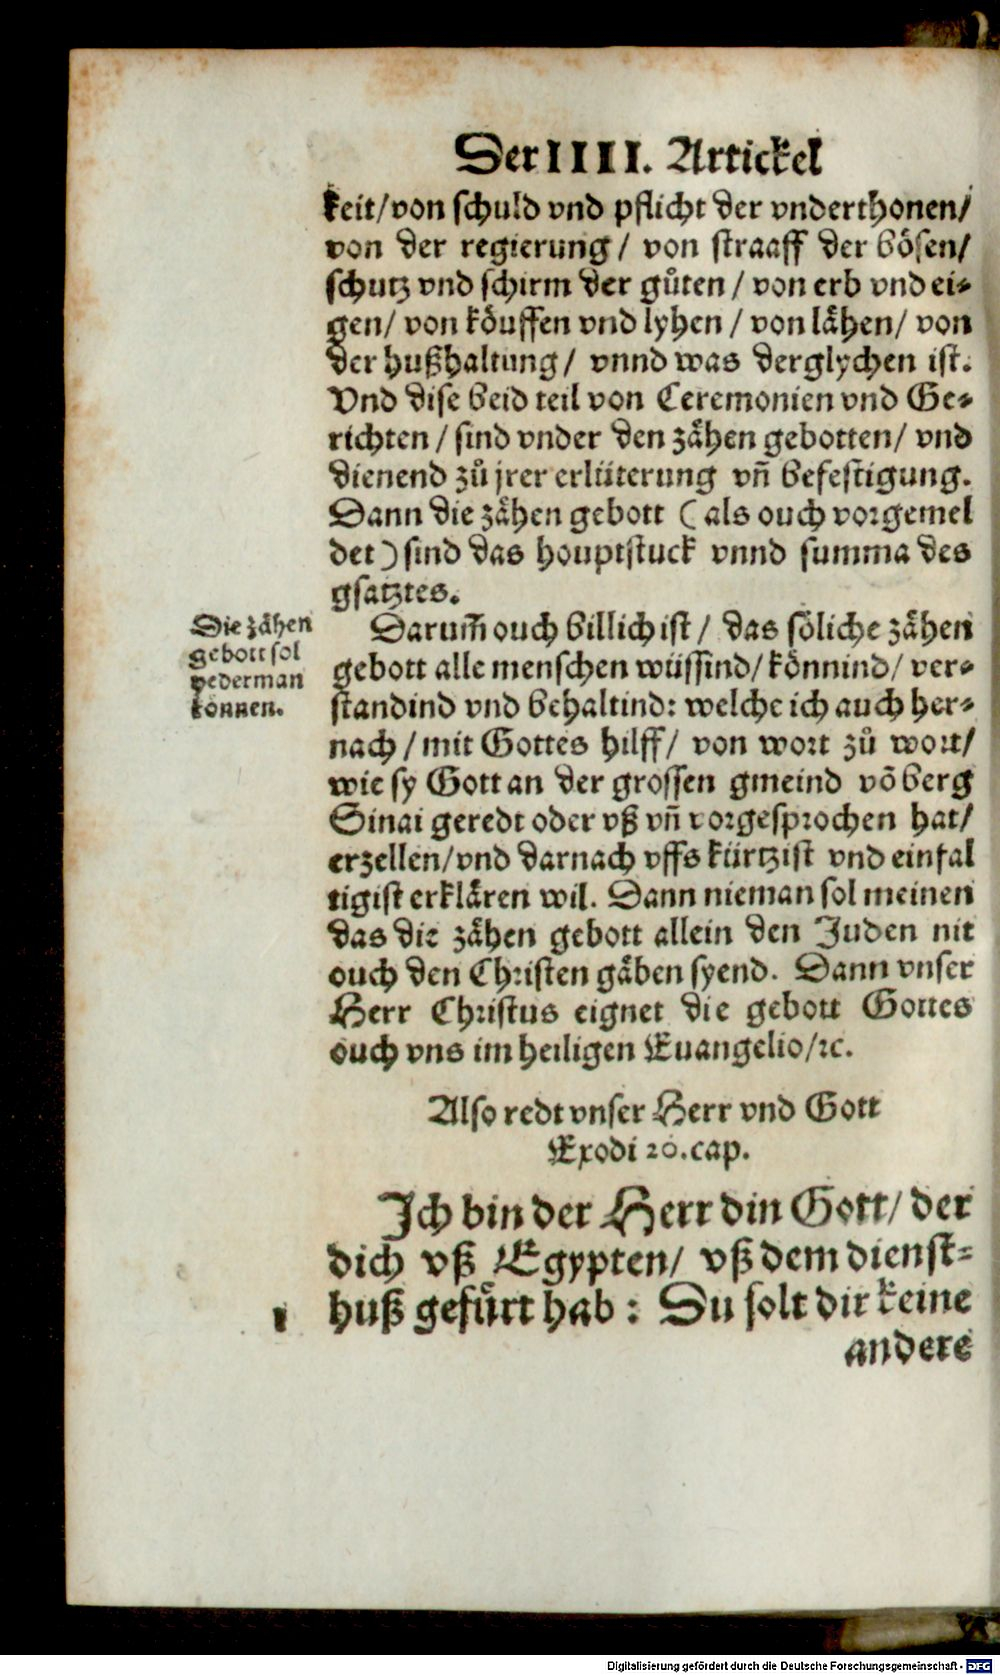 Der IIII. Artickel
keit/von schuld vnd pflicht der vnderthonen/
von der regierung / von straaff der bösen/
schutz vnd schirm der gůten / von erb vnd ei-
gen/ von köuffen vnd lyhen / von lähen/ von
der hußhaltung/ vnnd was derglychen ist.
Vnd dise beid teil von Ceremonien vnd Ge-
richten / sind vnder den zähen gebotten/ vnd
dienend zů jrer erlüterung vñ befestigung.
Dann die zähen gebott ( als ouch vorgemel
det ) sind das houptstuck vnnd summa des
gsatztes.
Die zähen
gebott sol
yederman
können.
Darum̃ ouch billich ist / das söliche zähen
gebott alle menschen wüssind/ könnind/ ver-
standind vnd behaltind: welche ich auch her-
nach / mit Gottes hilff/ von wort zů wort/
wie sy Gott an der grossen gmeind võ berg
Sinai geredt oder vß vñ vorgesprochen hat/
erzellen/vnd darnach vffs kürtzist vnd einfal
tigist erklären wil. Dann nieman sol meinen
das die zähen gebott allein den Juden nit
ouch den Christen gäben syend. Dann vnser
Herr Christus eignet die gebott Gottes
ouch vns im heiligen Euangelio/ꝛc.
Also redt vnser Herr vnd Gott
Exodi 20.cap.
Ich bin der Herr din Gott/ der
dich vß Egypten/ vß dem dienst-
1 huß gefürt hab : Du solt dir keine
andere
Digitalisierung gefördert durch die Deutsche Forschungsgemeinschaft - DFG